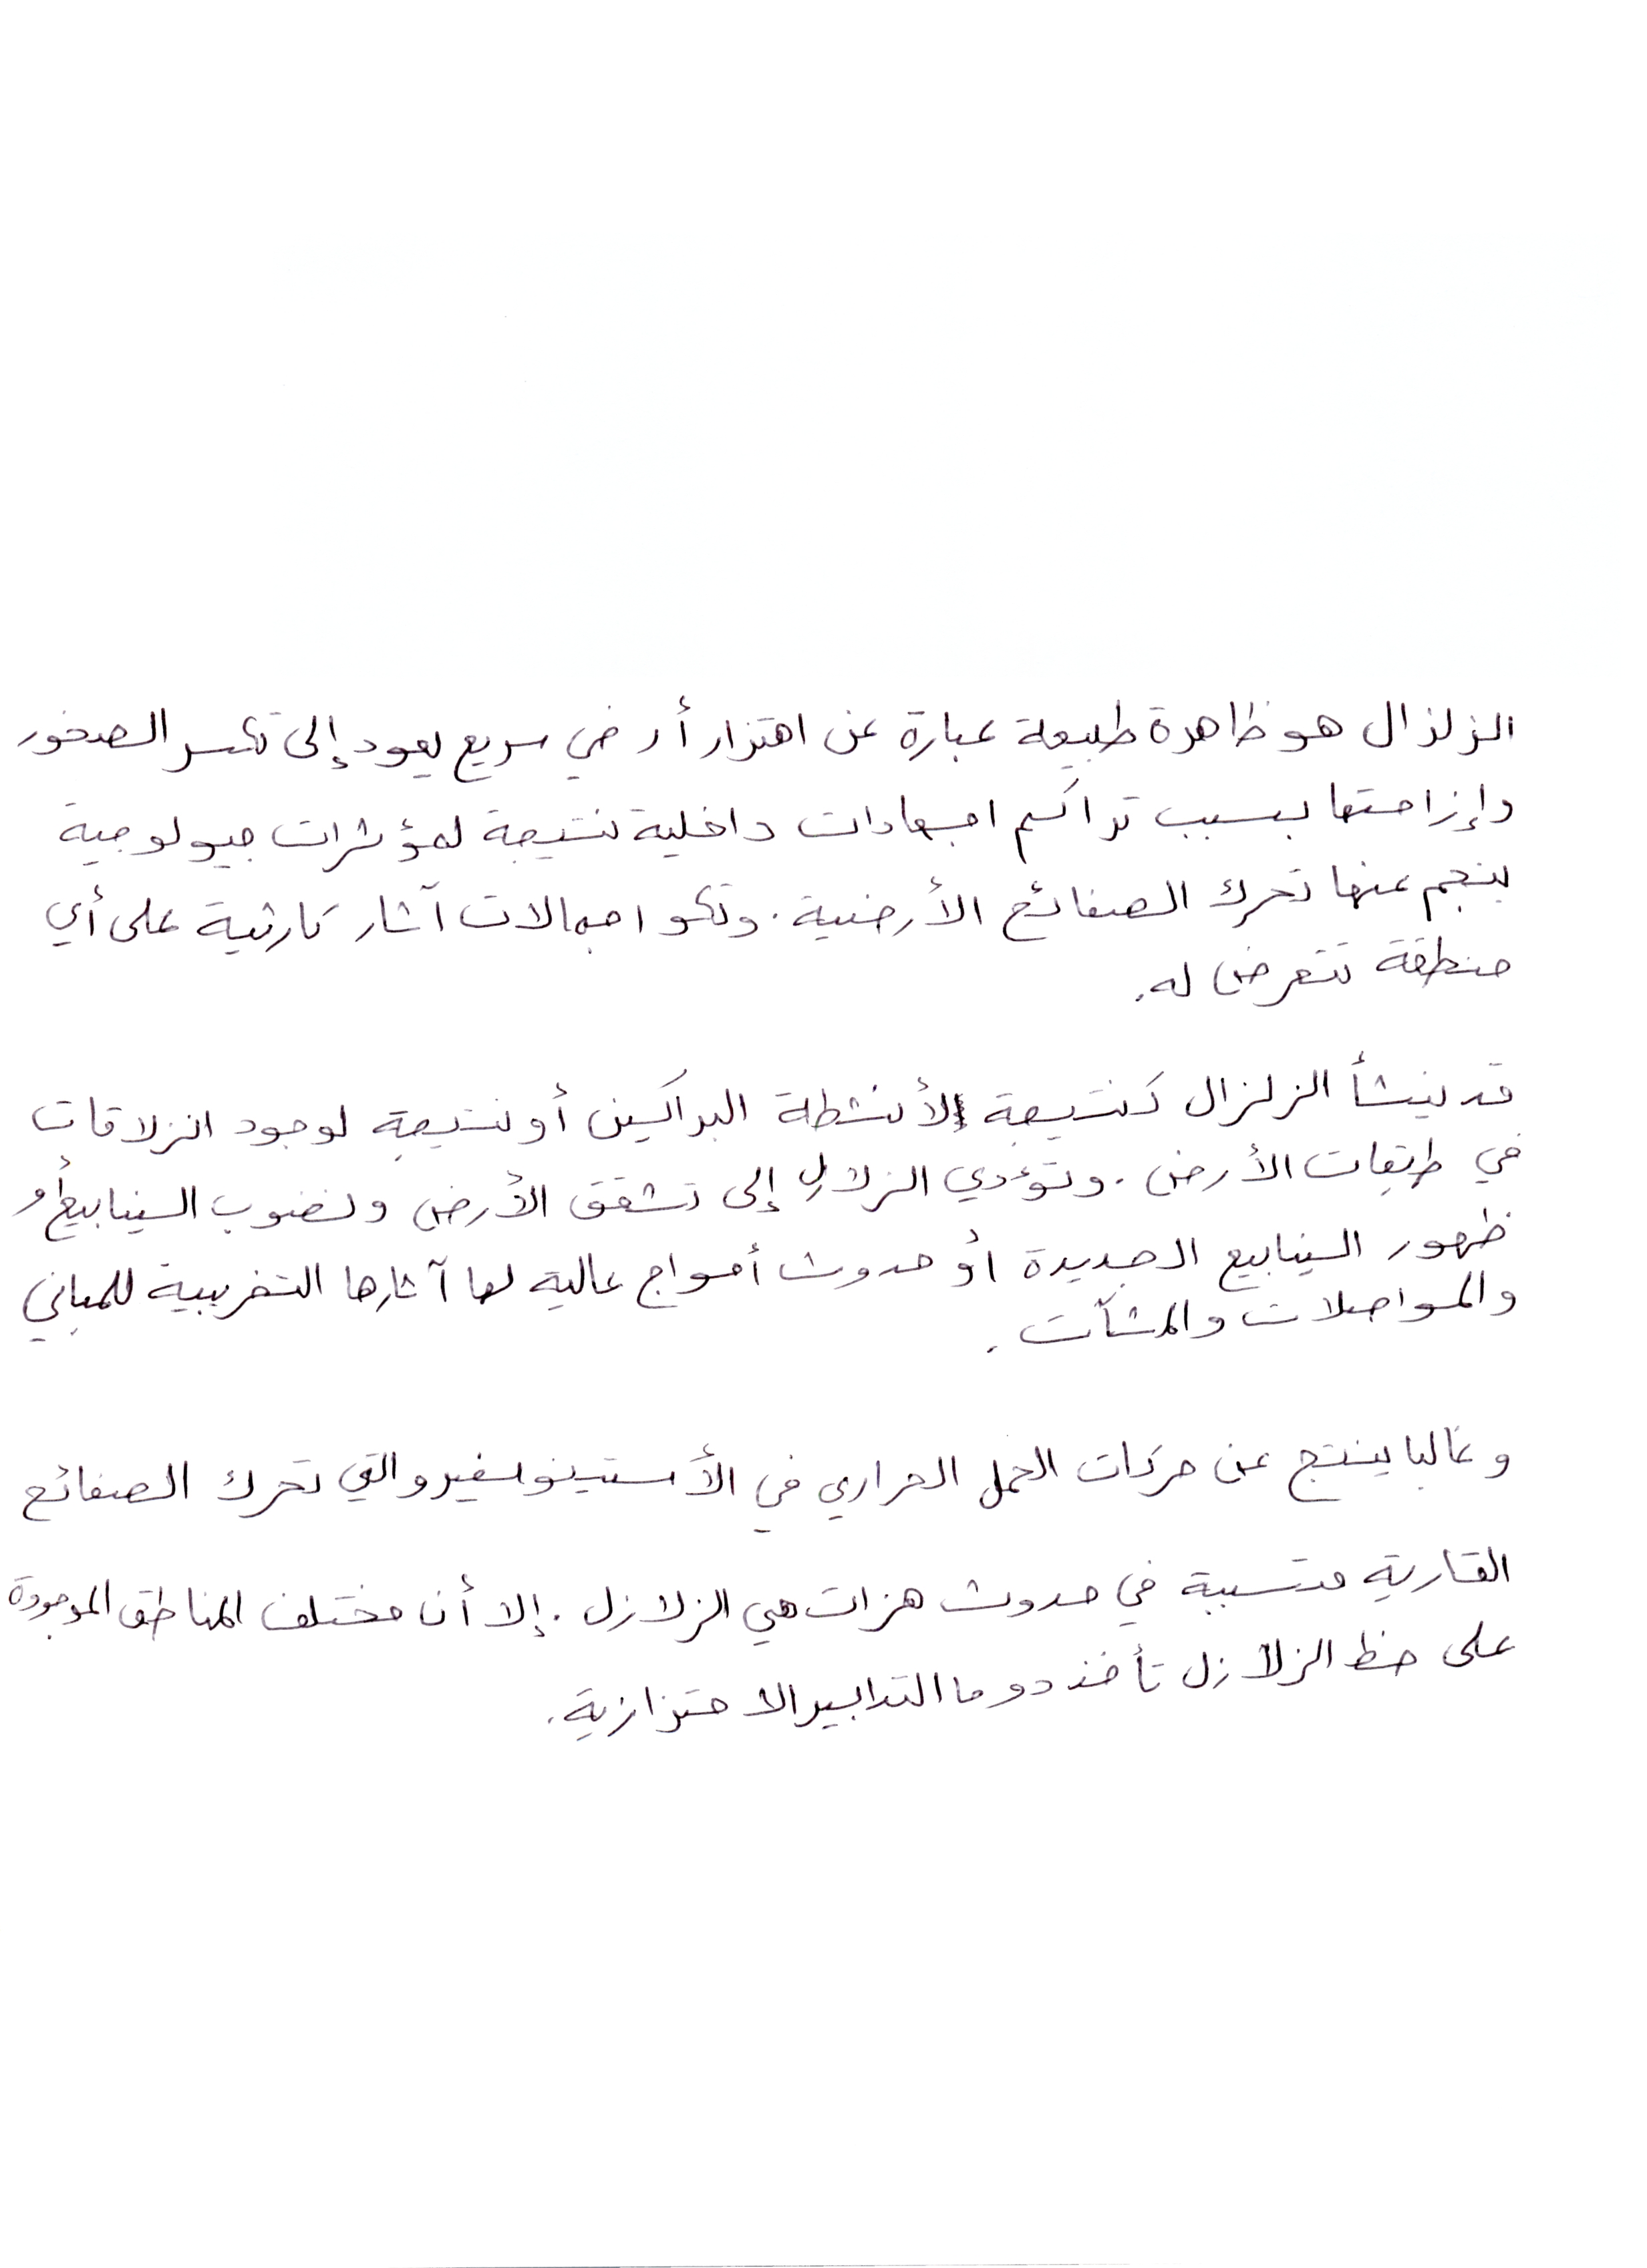 الزلزال هو ظاهرة طبيعة عبارة عن اهتزار أرضي سريع يعود إلى تكسر الصخور
وإزاحتها بسبب تراكم اجهادات داخلية نتيجة لمؤثرات جيولوجية
ينجم عنها تحرك الصفائح الأرضية. وتكو اجمالات آثار كارثية على أي
منطقة تتعرض له.
قد ينشأ الزلزال كنتيجة لأنشطة البراكين أو نتيجة لوجود انزلاقات
في طبقات الأرض. وتؤدي الزلازل إلى تشقق الأرض ونضوب الينابيع أو
ظهور الينابيع الجديدة أو حدوث أمواج عالية لها آثارها التخريبية للمباني
والمواصلات والمشآت.
وغالبا ينتج عن حركات الحمل الحراري في الأستينوسفير والتي تحرك الصفائح
القارية متسببة في حدوث هزات هي الزلازل. إلا أن مختلف المناطق الموجودة
على خط الزلازل تأخذ دوما التدابير الاحترازية.